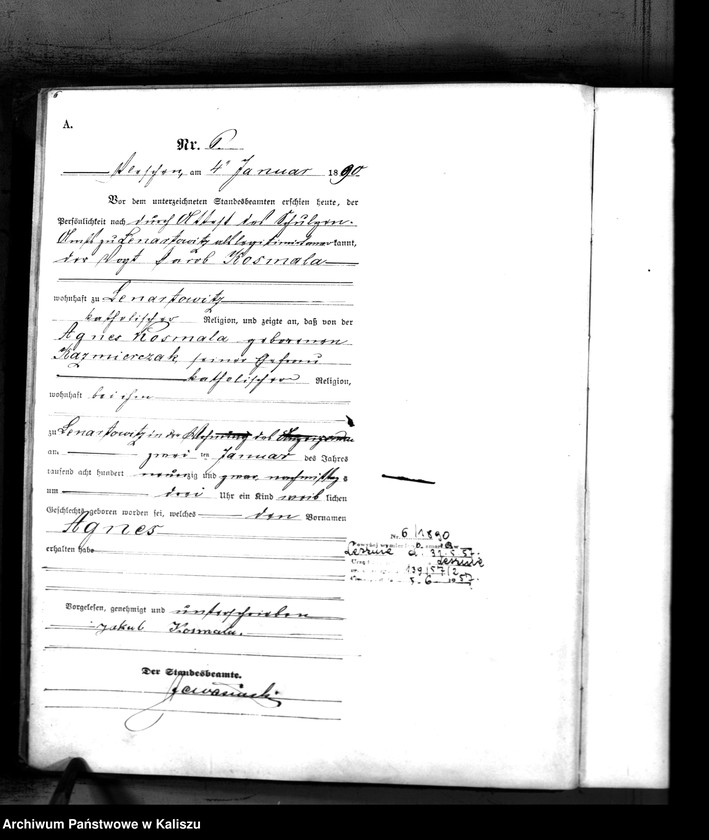 6
A.
Nr. 6.
Pleschen, am 4ᵗ Januar 1890
Vor dem unterzeichneten Standesbeamten erschien heute, der
Persönlichkeit nach durch Attest des Schulzen-
Amts zu Lenartowitz als legitimirt anerkannt,
der Vogt Jacob Kosmala
wohnhaft zu Lenartowitz
katholischer Religion, und zeigte an, daß von der
Agnes Kosmala geborenen
Kazmierczak, seiner Ehefrau
katholischer Religion,
wohnhaft bei ihm
zu Lenartowitz in der Wohnung des
am zwei ten Januar des Jahres
tausend acht hundert neunzig und zwar nachmittags
um drei Uhr ein Kind weiblichen
Geschlechts geboren worden sei, welches den Vornamen
Agnes
erhalten habe
Nr. 6/1890
d. 31.5.57.
139/57/2
5-6-1957
Vorgelesen, genehmigt und unterschrieben
Jakub Kosmala.
Der Standesbeamte.
Archiwum Państwowe w Kaliszu